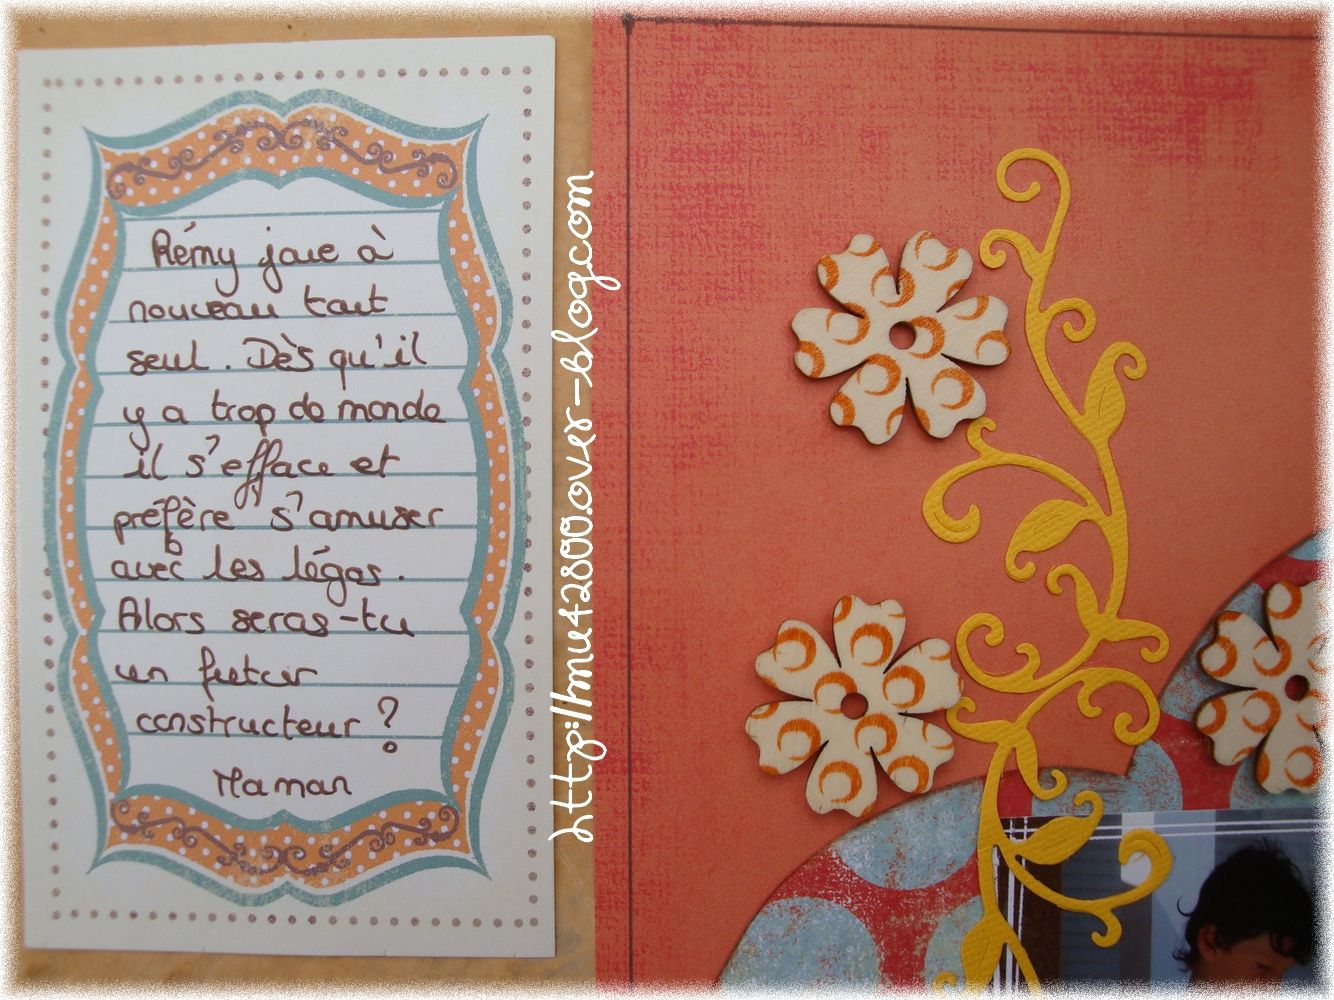 Rémy joue à
nouveau tout
seul. Dès qu'il
y a trop de monde
il s'efface et
préfère s'amuser
avec les légos.
Alors seras-tu
un futur
constructeur ?
Maman
http://mu42800.over-blog.com